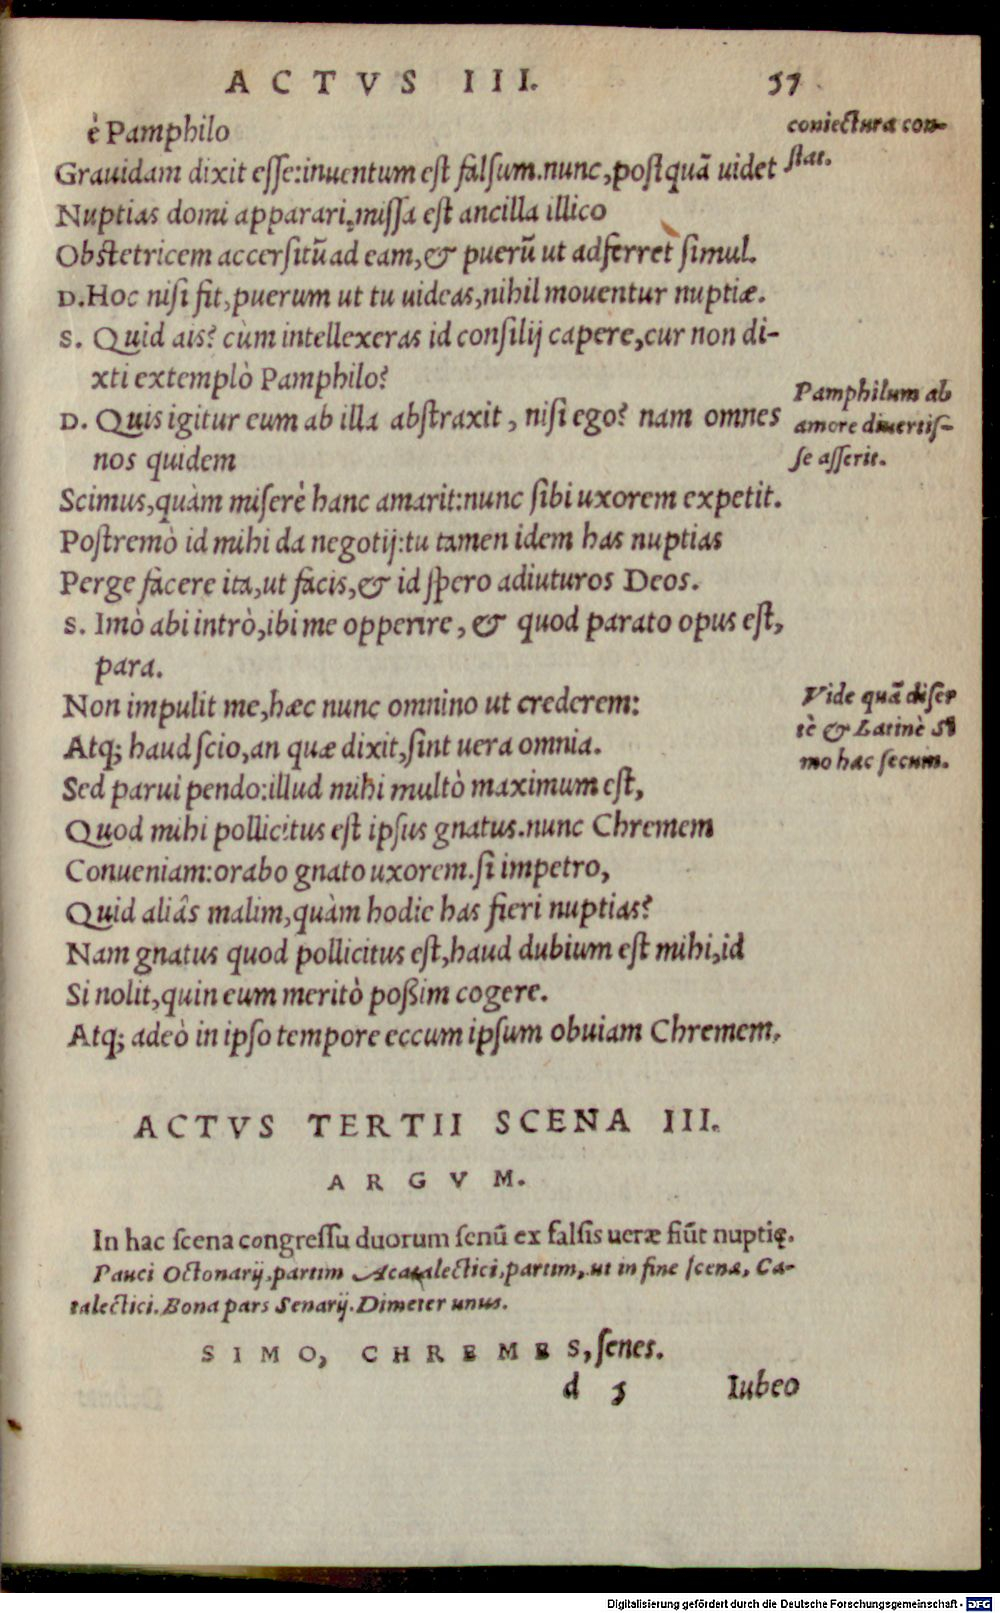 ACTVS III. 57
è Pamphilo
coniectura con-
stat.
Grauidam dixit esse:inuentum est falsum.nunc,postquã uidet
Nuptias domi apparari,missa est ancilla illico
Obstetricem accersitũ ad eam,& puerũ ut adferret simul.
D.Hoc nisi fit,puerum ut tu uideas,nihil mouentur nuptiæ.
S. Quid ais? cùm intellexeras id consilij capere,cur non di-
xti extemplò Pamphilo?
D. Quis igitur eum ab illa abstraxit, nisi ego? nam omnes
nos quidem
Pamphilum ab
amore diuertis-
se asserit.
Scimus,quàm miserè hanc amarit:nunc sibi uxorem expetit.
Postremò id mihi da negotij:tu tamen idem has nuptias
Perge facere ita,ut facis,& id spero adiuturos Deos.
S. Imò abi intrò,ibi me opperire, & quod parato opus est,
para.
Non impulit me,hæc nunc omnino ut crederem:
Vide quã diser
tè & Latinè Si
mo hac secum.
Atq; haud scio,an quæ dixit,sint uera omnia.
Sed parui pendo:illud mihi multò maximum est,
Quod mihi pollicitus est ipsus gnatus.nunc Chremem
Conueniam:orabo gnato uxorem.si impetro,
Quid aliâs malim,quàm hodie has fieri nuptias?
Nam gnatus quod pollicitus est,haud dubium est mihi,id
Si nolit,quin eum meritò poßim cogere.
Atq; adeò in ipso tempore eccum ipsum obuiam Chremem.
ACTVS TERTII SCENA III.
ARGVM.
In hac scena congressu duorum senũ ex falsis ueræ fiũt nuptię.
Pauci Octonarij,partim Acatalectici,partim,ut in fine scenæ, Ca-
talectici.Bona pars Senarij.Dimeter unus.
SIMO, CHREMES, senes.
d 5 Iubeo
Digitalisierung gefördert durch die Deutsche Forschungsgemeinschaft - DFG